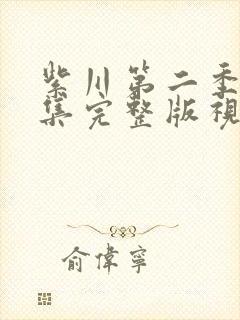 紫川第二季
集完整版視
俞偉寧